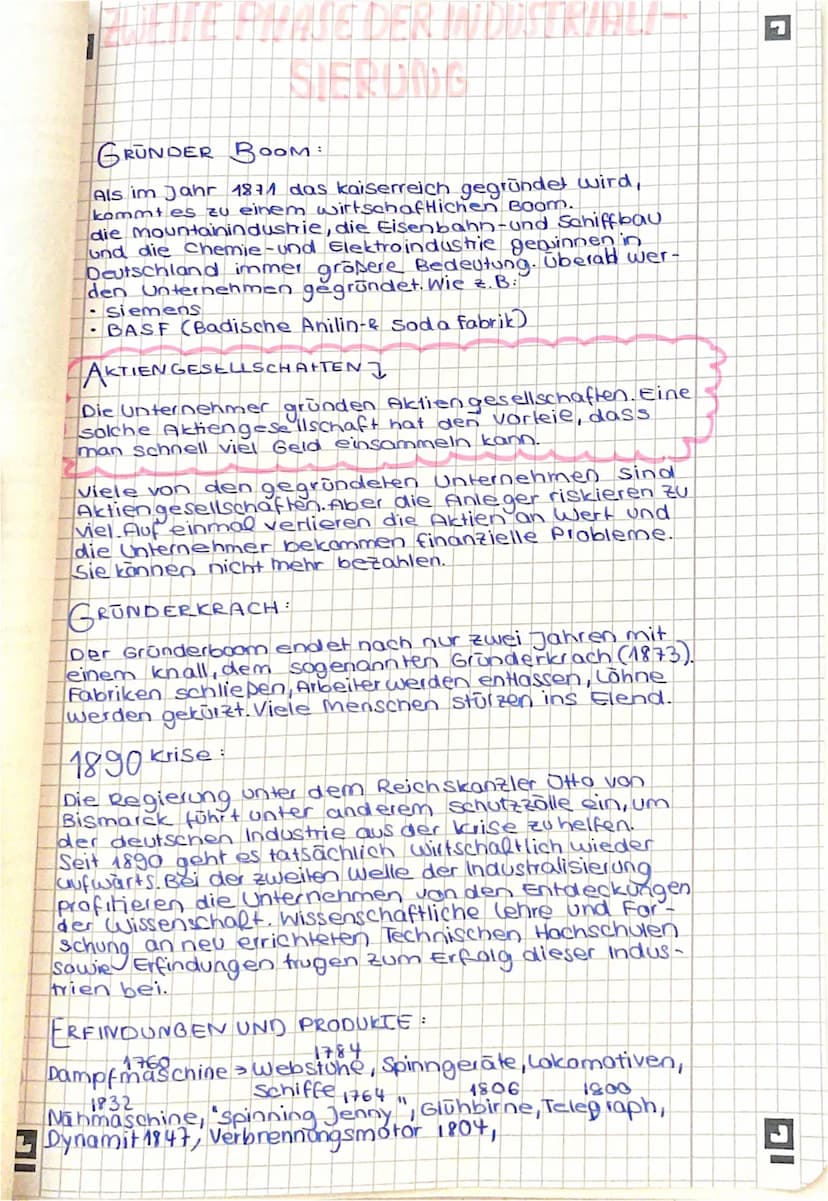 ZWEITE PHASE DER INDUSTRIALI-
SIERUNG
GRÜNDER BOOM:
Als im Jahr 1871 das Kaiserreich gegründet wird,
kommt es zu einem wirtschaftlichen Boom.
die Mountainindustrie, die Eisenbahn-und Schiffbau
und die Chemie-und Elektroindustrie gewinnen in
Deutschland immer größere Bedeutung. Überall wer-
den Unternehmen gegründet. Wie z.B:
• Siemens
• BASF (Badische Anilin-& Soda Fabrik)
AKTIENGESELLSCHAFTEN ↓
Die Unternehmer gründen Aktiengesellschaften. Eine
solche Aktiengesellschaft hat den Vorteie, dass
man schnell viel Geld einsammeln kann.
Viele von den gegründeten Unternehmen sind
Aktiengesellschaften. Aber die Anleger riskieren zu
viel. Auf einmal verlieren die Aktien an Wert und
die Unternehmer bekommen finanzielle Probleme.
Sie können nicht mehr bezahlen.
GRÜNDERKRACH:
Der Gründerboom endet nach nur zwei Jahren mit
einem Knall, dem sogenannten Gründerkrach (1873).
Fabriken schließen, Arbeiter werden entlassen, Löhne
werden gekürzt. Viele Menschen stürzen ins Elend.
1890 Krise:
Die Regierung unter dem Reichskanzler Otto von
Bismarck führt unter anderem Schutzzölle ein, um
der deutschen Industrie aus der Krise zu helfen.
Seit 1890 geht es tatsächlich wirtschaftlich wieder
aufwärts. Bei der zweiten Welle der Industralisierung
profitieren die Unternehmen von den Entdeckungen
der Wissenschaft. Wissenschaftliche Lehre und For-
schung an neu errichteten Technischen Hochschulen
sowie Erfindungen trugen zum Erfolg dieser Indus-
trien bei.
ERFINDUNGEN UND PRODUKTE:
1769 1784
Dampfmaschine → Webstühe, Spinngeräte, Lokomotiven,
Schiffe 1764 1806 1800
1832
Nähmaschine, "Spinning Jenny", Glühbirne, Telegraph,
Dynamit 1847, Verbrennungsmotor 1804,